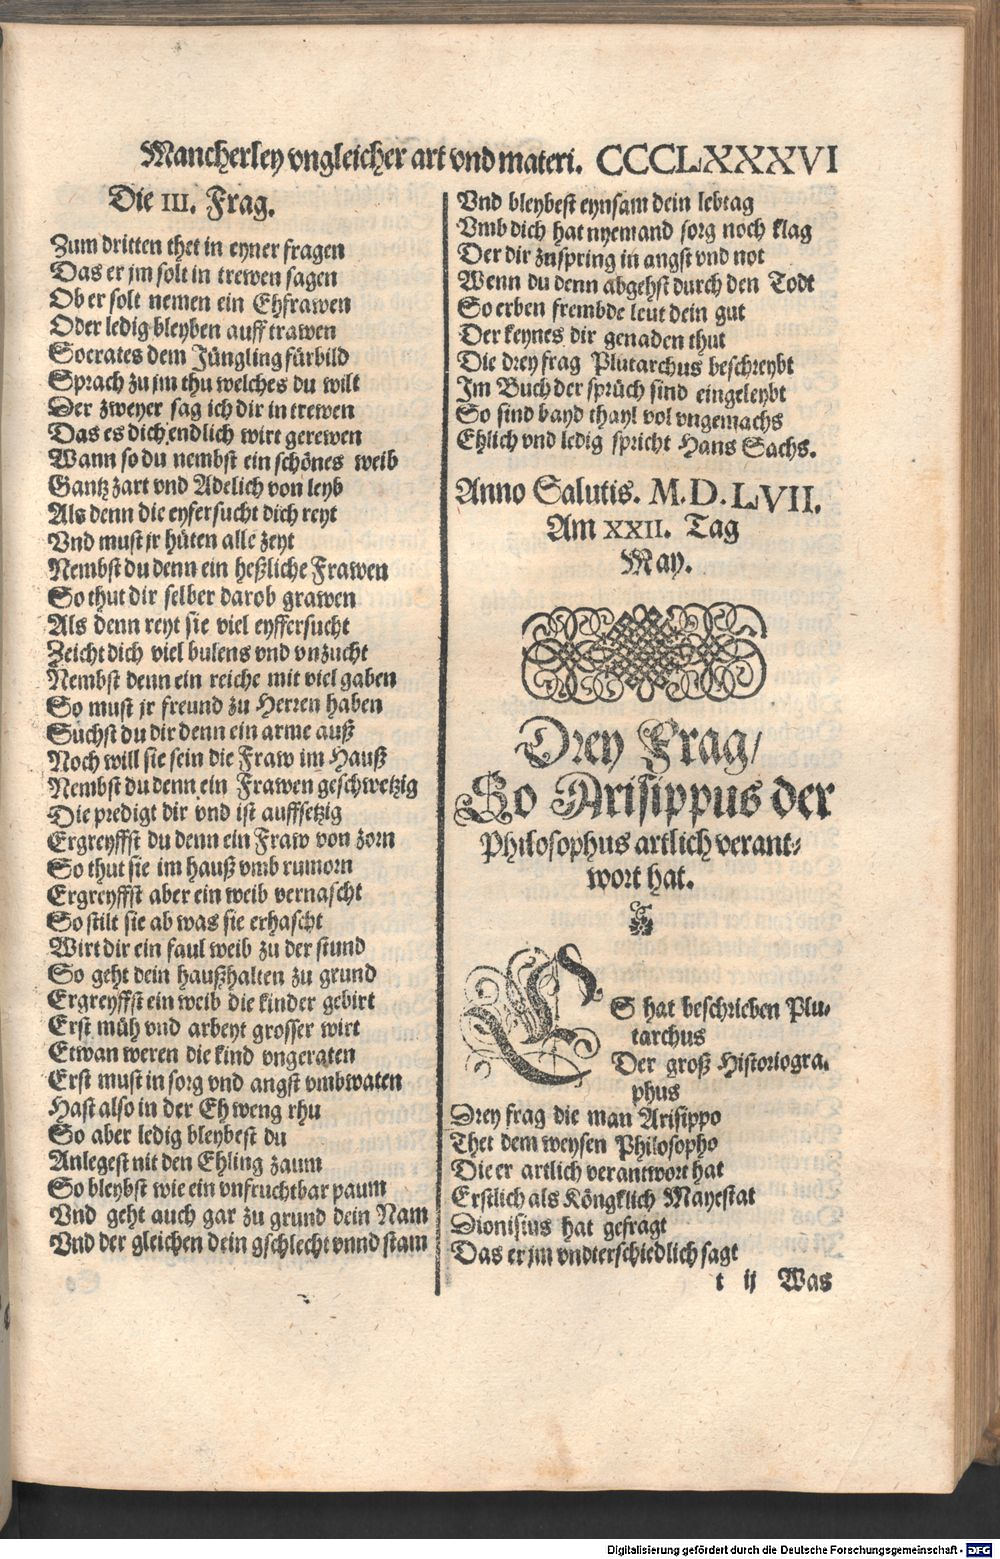 Mancherley vngleicher art vnd materi. CCCLXXXVI
Die III. Frag.
Zum dritten thet in eyner fragen
Das er jm solt in trewen sagen
Ob er solt nemen ein Ehfrawen
Oder ledig bleyben auff trawen
Socrates dem Jüngling fürbild
Sprach zu jm thu welches du wilt
Der zweyer sag ich dir in trewen
Das es dich endlich wirt gerewen
Wann so du nembst ein schönes weib
Gantz zart vnd Adelich von leyb
Als denn die eyfersucht dich reyt
Vnd must jr hüten alle zeyt
Nembst du denn ein heßliche Frawen
So thut dir selber darob grawen
Als denn reyt sie viel eyffersucht
Zeicht dich viel bulens vnd vnzucht
Nembst denn ein reiche mit viel gaben
So must jr freund zu Herren haben
Süchst du dir denn ein arme auß
Noch will sie sein die Fraw im Hauß
Nembst du denn ein Frawen geschwetzig
Die predigt dir vnd ist auffsetzig
Ergreyffst du denn ein Fraw von zorn
So thut sie im hauß vmb rumorn
Ergreyffst aber ein weib vernascht
So stilt sie ab was sie erhascht
Wirt dir ein faul weib zu der stund
So geht dein haußhalten zu grund
Ergreyffst ein weib die kinder gebirt
Erst müh vnd arbeyt grosser wirt
Etwan weren die kind vngeraten
Erst must in sorg vnd angst vmbwaten
Hast also in der Eh weng rhu
So aber ledig bleybest du
Anlegest nit den Ehling zaum
So bleybst wie ein vnfruchtbar paum
Vnd geht auch gar zu grund dein Nam
Vnd der gleichen dein gschlecht vnnd stam
Vnd bleybest eynsam dein lebtag
Vmb dich hat nyemand sorg noch klag
Der dir zuspring in angst vnd not
Wenn du denn abgehst durch den Todt
So erben frembde leut dein gut
Der keynes dir genaden thut
Die drey frag Plutarchus beschreybt
Im Buch der sprüch sind eingeleybt
So sind bayd thayl vol vngemachs
Ehlich vnd ledig spricht Hans Sachs.
Anno Salutis. M.D.LVII.
Am XXII. Tag
May.
Drey Frag/
So Arisippus der
Philosophus artlich verant-
wort hat.
ES hat beschrieben Plu-
tarchus
Der groß Historiogra-
phus
Drey frag die man Arisippo
Thet dem weysen Philosopho
Die er artlich verantwort hat
Erstlich als Köngklich Mayestat
Dionisius hat gefragt
Das er jm vndterschiedlich sagt
t ij Was
Digitalisierung gefördert durch die Deutsche Forschungsgemeinschaft - DFG